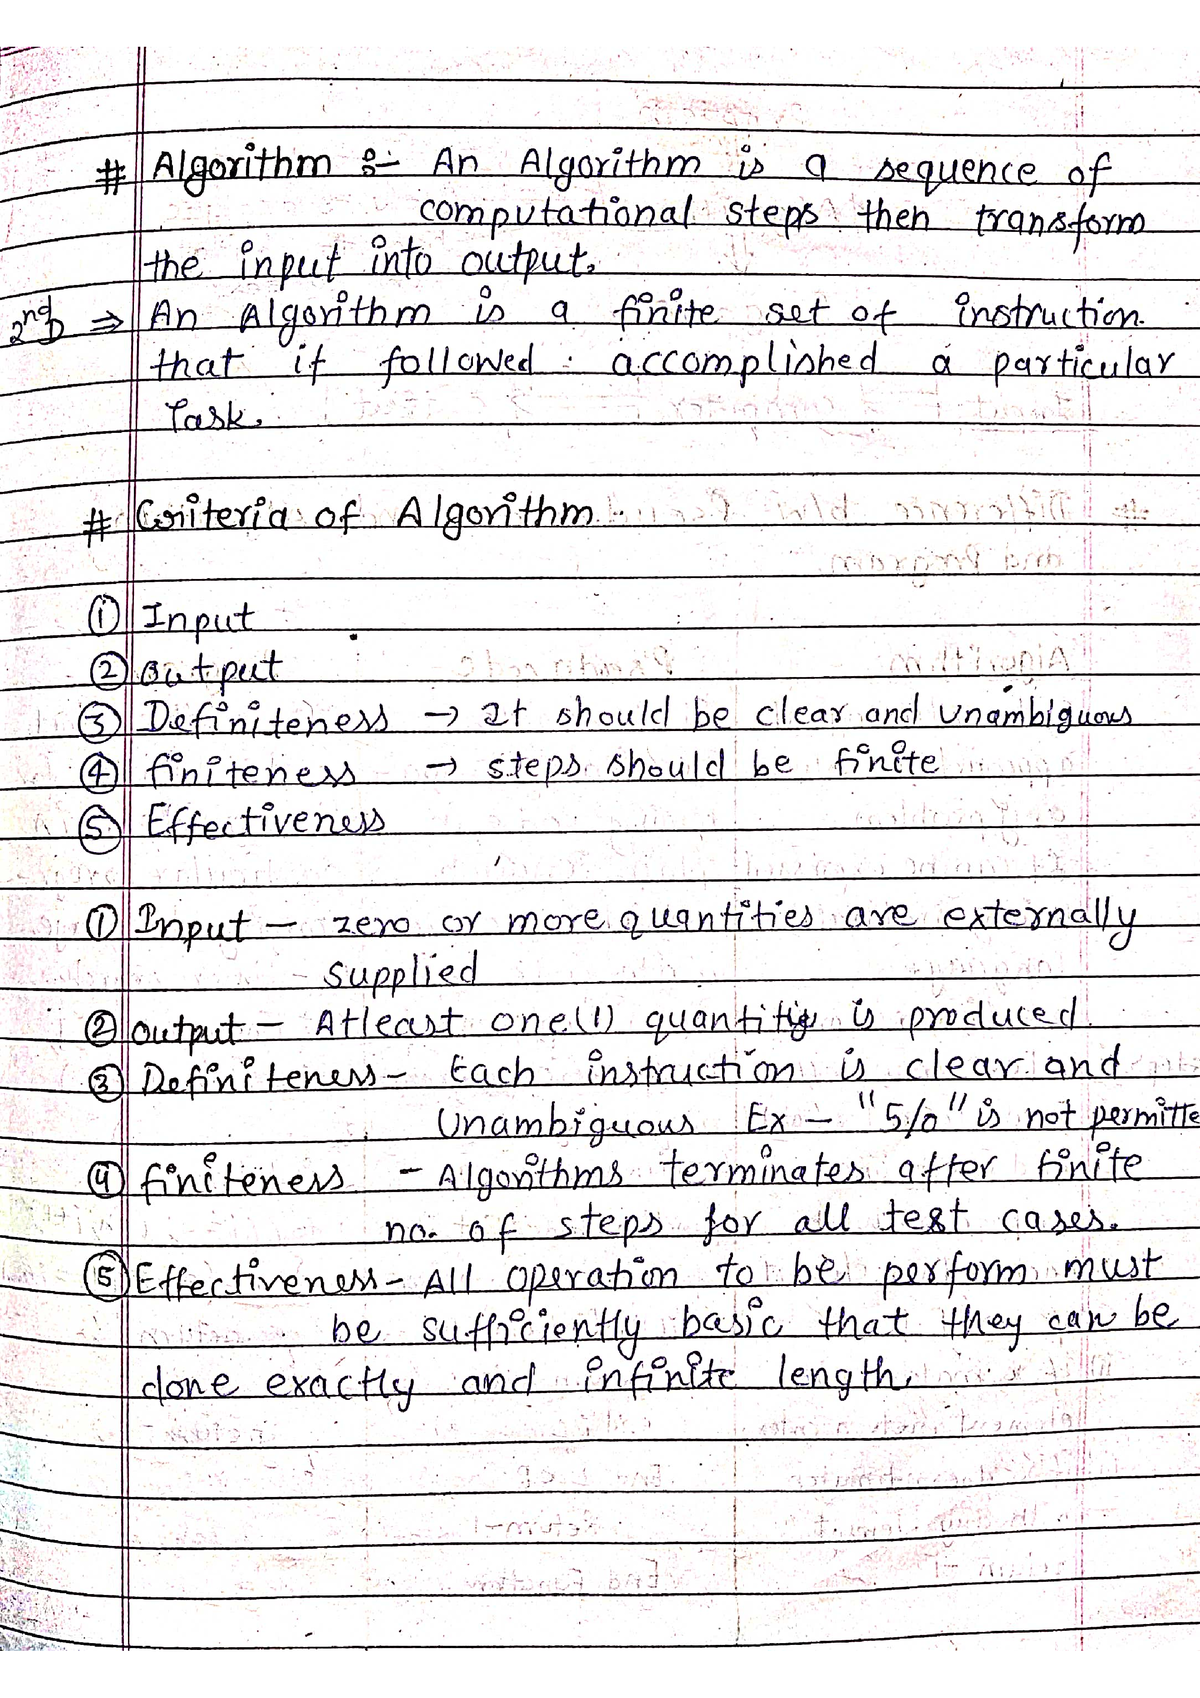 # Algorithm :- An Algorithm is a sequence of
computational steps then transform
the input into output.
2nd D ⇒ An Algorithm is a finite set of instruction.
that if followed accomplished a particular
Task.
# Criteria of Algorithm
① Input
② Output
③ Definiteness → It should be clear and unambiguous
④ finiteness → steps should be finite
⑤ Effectiveness
① Input - zero or more quantities are externally
supplied
② output - Atleast one(1) quantitie is produced.
③ Definiteness - Each instruction is clear and
Unambiguous Ex - "5/0" is not permitte
④ finiteness - Algorithms terminates after finite
no. of steps for all test cases.
⑤ Effectiveness - All operation to be perform must
be sufficiently basic that they can be
done exactly and infinite length.